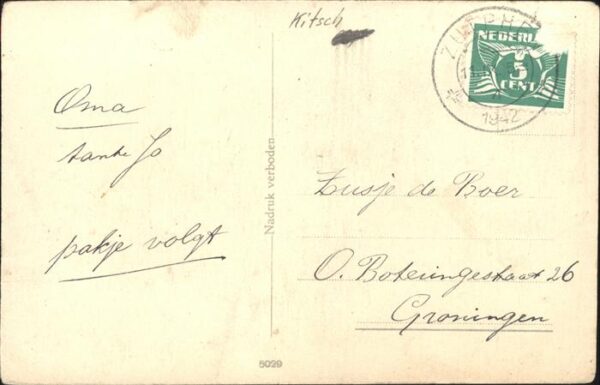 Kitsch
ZUTPHE
1942
NEDERL
5
CENT
Oma
tante Jo
pakje volgt
Nadruk verboden
Zusje de Boer
O. Boteringestraat 26
Groningen
5029